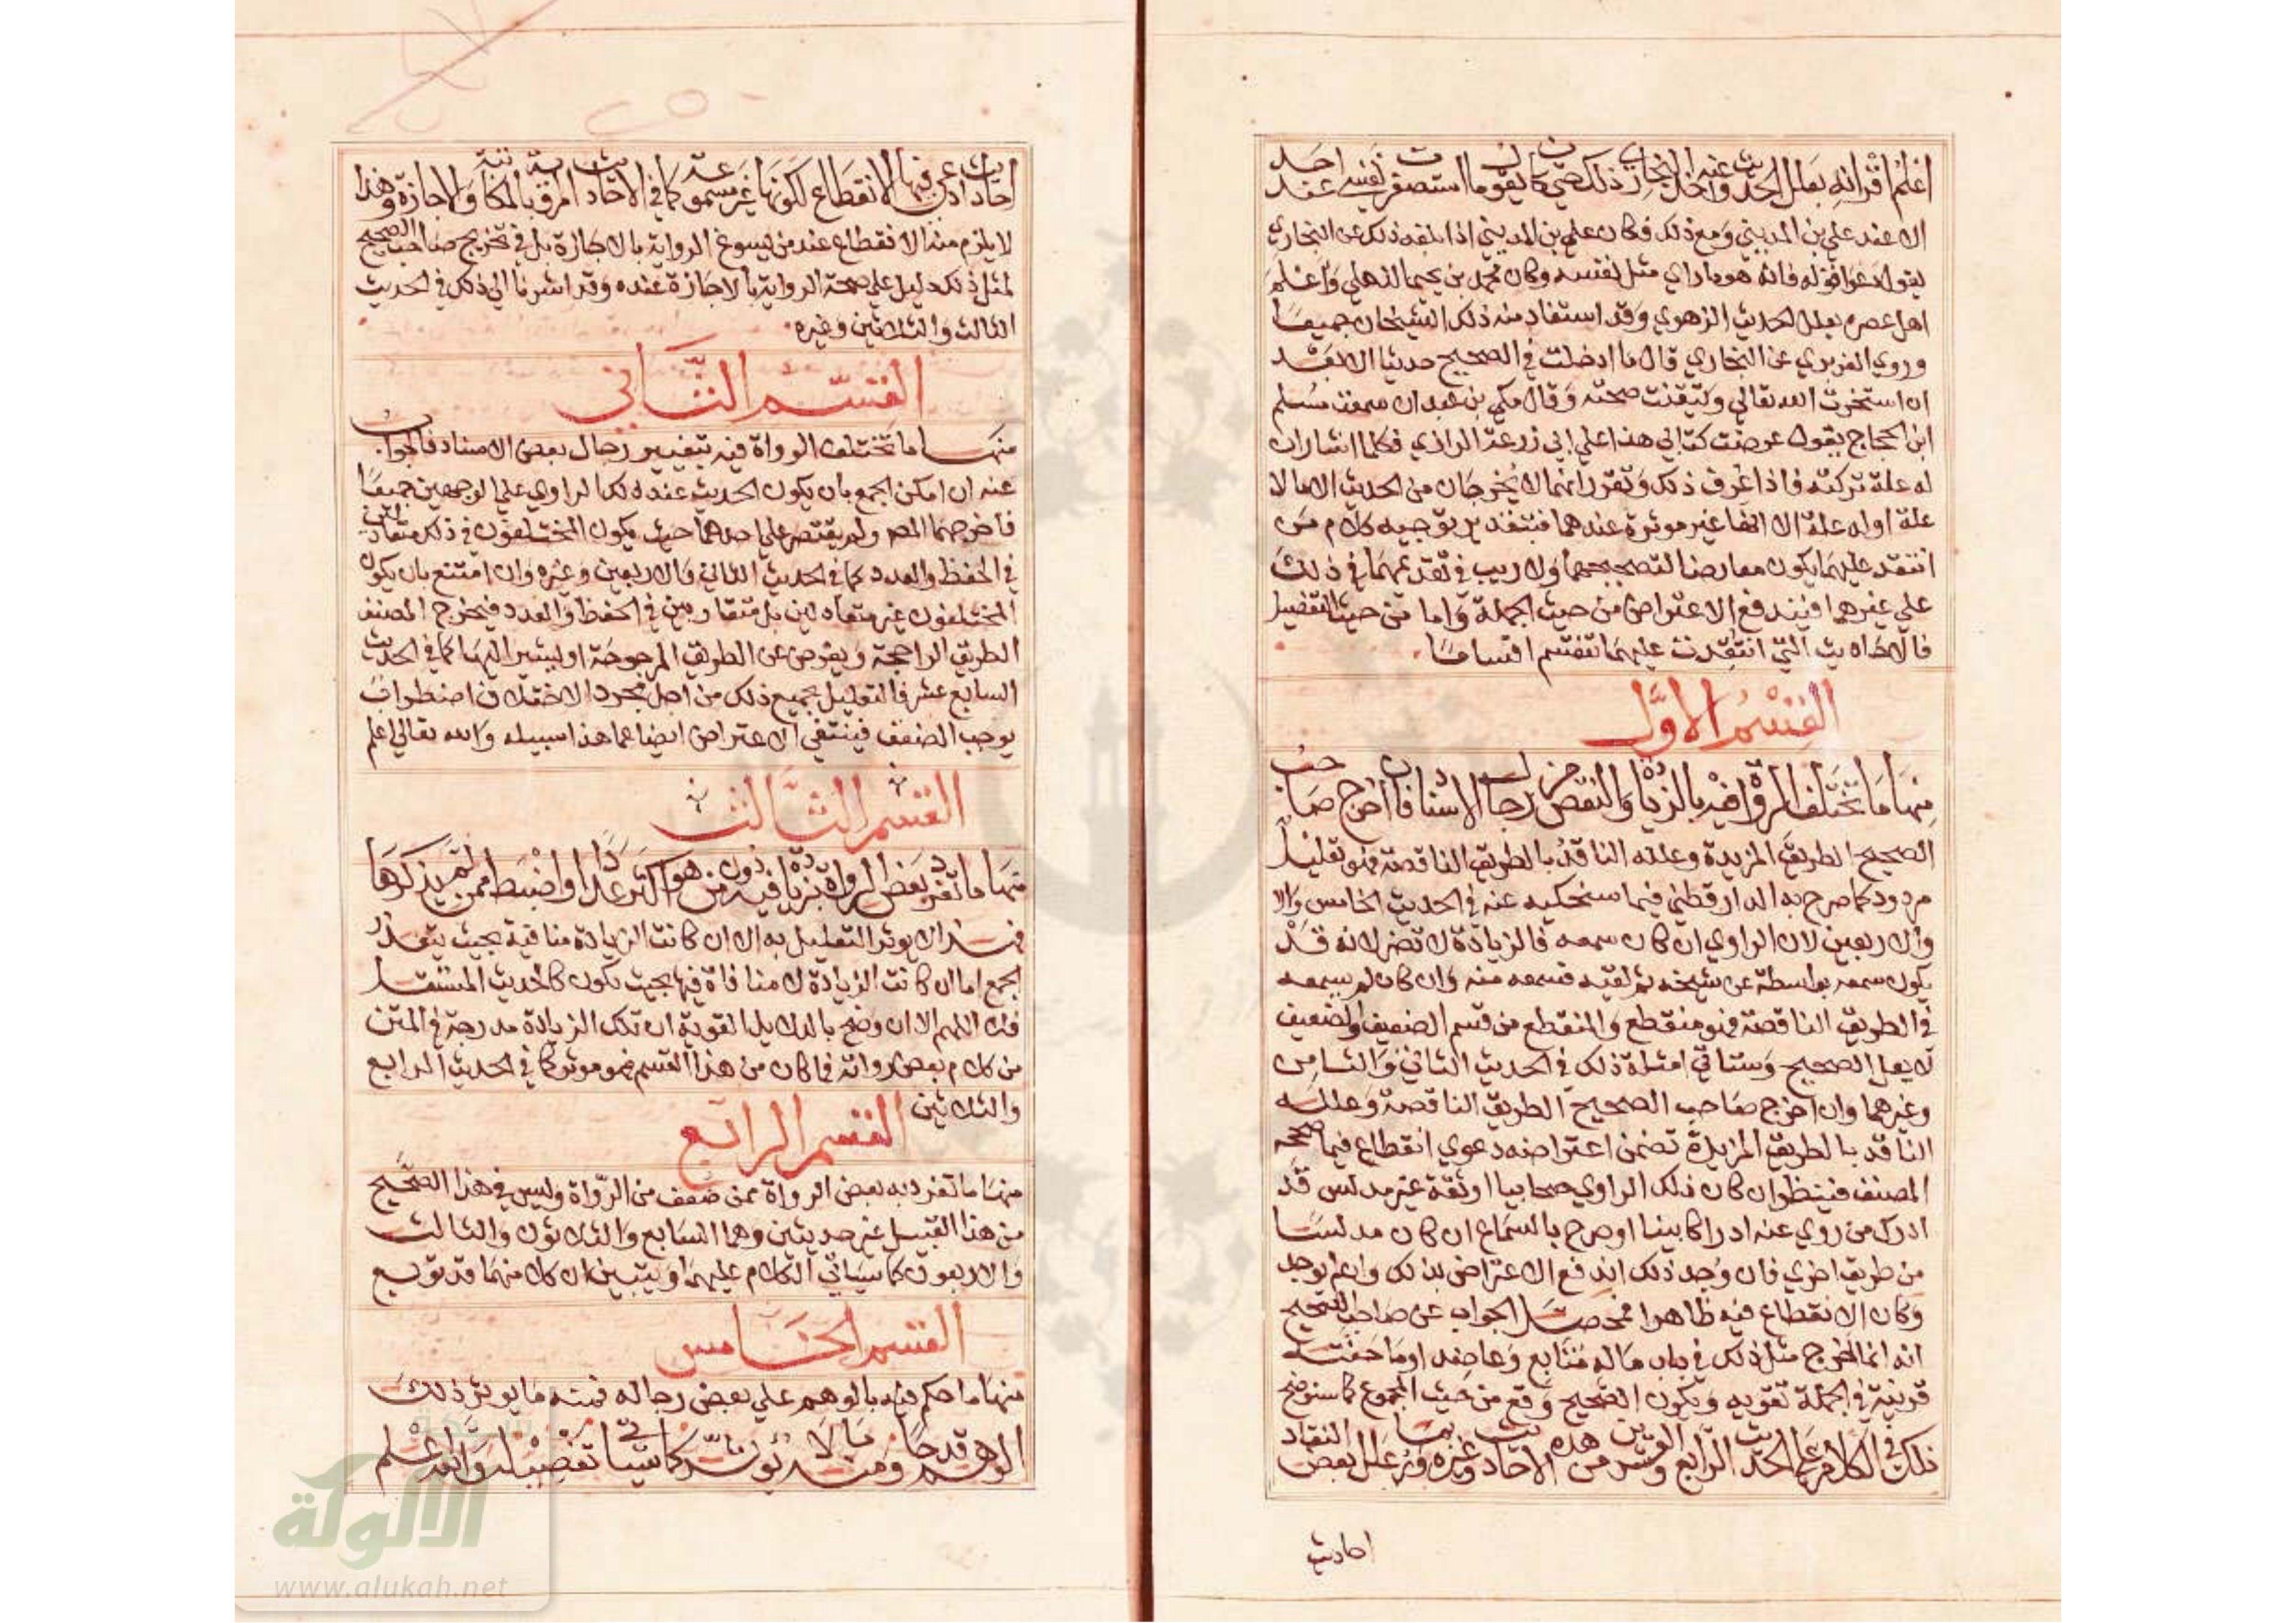 اعلم اقرانه بعلل الحديث وعنه اخذ البخاري ذلك حتى كان يقول ما استصغرت نفسي عند احد
الا عند علي بن المديني ومع ذلك فكان علي بن المديني اذا بلغه ذلك عن البخاري
يقول دعوا قوله فانه ما راي مثل نفسه وكان محمد بن يحيى الذهلي واعلم
اهل عصره بعلل حديث الزهري وقد استفاد منه ذلك الشيخان جميعا
وروي الفربري عن البخاري قال ما ادخلت في الصحيح حديثا الا بعد
ان استخرت الله تعالي وتيقنت صحته وقال مكي بن عبدان سمعت مسلم
ابن الحجاج يقول عرضت كتابي هذا علي ابي زرعة الرازي فكلما اشار ان
له علة تركته فاذا عرف ذلك وتقرر انهما لا يخرجان من الحديث الا ما لا
علة له او له علة الا انها غير موثرة عندهما فبتقدير توجيه كلام من
انتقد عليهما يكون معارضا لتصحيحهما ولا ريب في تقديمهما في ذلك
علي غيرهما فيندفع الاعتراض من حيث الجملة واما من حيث التفصيل
فالاحاديث التي انتقدت عليهما تنقسم اقساما
القسم الاول
منها ما تختلف الرواة فيه بالزيادة والنقص من رجال الاسناد فان اخرج صاحب
الصحيح الطريق المزيدة وعلله الناقد بالطريق الناقصة فهو تعليل
مردود كما صرح به الدارقطني فيما سنحكيه عنه في الحديث الخامس والا
والاربعين لان الراوي ان كان سمعه فالزيادة لا تضر لانه قد
يكون سمعه بواسطة عن شيخه ثم لقيه فسمعه منه وان كان لم يسمعه
في الطريق الناقصة فهو منقطع والمنقطع من قسم الضعيف والضعيف
لا يعل الصحيح وستاتي امثلة ذلك في الحديث الثاني والثامن
وغيرهما وان اخرج صاحب الصحيح الطريق الناقصة وعلله
الناقد بالطريق المزيدة تضمن اعتراضه دعوي انقطاع فيما صححه
المصنف فينظر ان كان ذلك الراوي صحابيا او ثقة غير مدلس قد
ادرك من روي عنه ادراكا بينا او صرح بالسماع ان كان مدلسا
من طريق اخري فان وجد ذلك اندفع الاعتراض بذلك وان لم يوجد
وكان الانقطاع فيه ظاهرا فمحصل الجواب عن صاحب الصحيح
انه انما اخرج مثل ذلك في باب ما له متابع وعاضد او ما حفته
قرينة في الجملة تقويه ويكون الصحيح وقع من حيث المجموع كما سنوضح
ذلك في الكلام علي الحديث الرابع والعشرين من هذه الاحاديث وغيره وربما علل بعض النقاد
احاديث
احاديث ادعي فيها الانقطاع لكونها غير مسموعة كما في الاحاديث المروية بالمكاتبة والاجازة وهذا
لا يلزم منه الانقطاع عند من يسوغ الرواية بالاجازة بل في تخريج صاحب الصحيح
لمثل ذلك دليل علي صحة الرواية بالاجازة عنده وقد اشرنا الي ذلك في الحديث
الثالث والثلاثين وغيره
القسم الثاني
منها ما تختلف الرواة فيه بتغيير رجال بعض الاسناد فالجواب
عنه ان امكن الجمع بان يكون الحديث عند ذلك الراوي علي الوجهين جميعا
فاخرجهما المص ولم يقتصر علي احدهما حيث يكون المختلفون في ذلك متعادلين
في الحفظ والعدد كما في الحديث الثاني والاربعين وغيره وان امتنع بان يكون
المختلفون غير متعادلين بل متقاربين في الحفظ والعدد فيخرج المصنف
الطريق الراجحة ويعرض عن الطريق المرجوحة او يشير اليها كما في الحديث
السابع عشر فالتعليل بجميع ذلك من اجل مجرد الاختلاف اضطراب
يوجب الضعف فينتفي الاعتراض ايضا عما هذا سبيله والله تعالي اعلم
القسم الثالث
منها ما تفرد بعض الرواة بزيادة فيه دون من هو اكثر عددا او اضبط ممن لم يذكرها
فهذا لا يوثر التعليل به الا ان كانت الزيادة منافية بحيث يتعذر
الجمع اما ان كانت الزيادة لا منافاة فيها بحيث تكون كالحديث المستقل
فلا اللهم الا ان وضح بالدلايل القوية ان تلك الزيادة مدرجة في المتن
من كلام بعض رواته فما كان من هذا القسم فهو موثر كما في الحديث الرابع
والثلاثين
القسم الرابع
منها ما تفرد به بعض الرواة ممن ضعف من الرواة وليس في هذا الصحيح
من هذا القبيل غير حديثين وهما السابع والثلاثون والثالث
والاربعون كما سياتي الكلام عليهما ويتبين ان كلا منهما قد توبع
القسم الخامس
منها ما حكم فيه بالوهم علي بعض رجاله فمنه ما يوثر ذلك
الوهم قدحا ومنه ما لا يوثر كما سياتي تفصيله والله اعلم
الألوكة
www.alukah.net